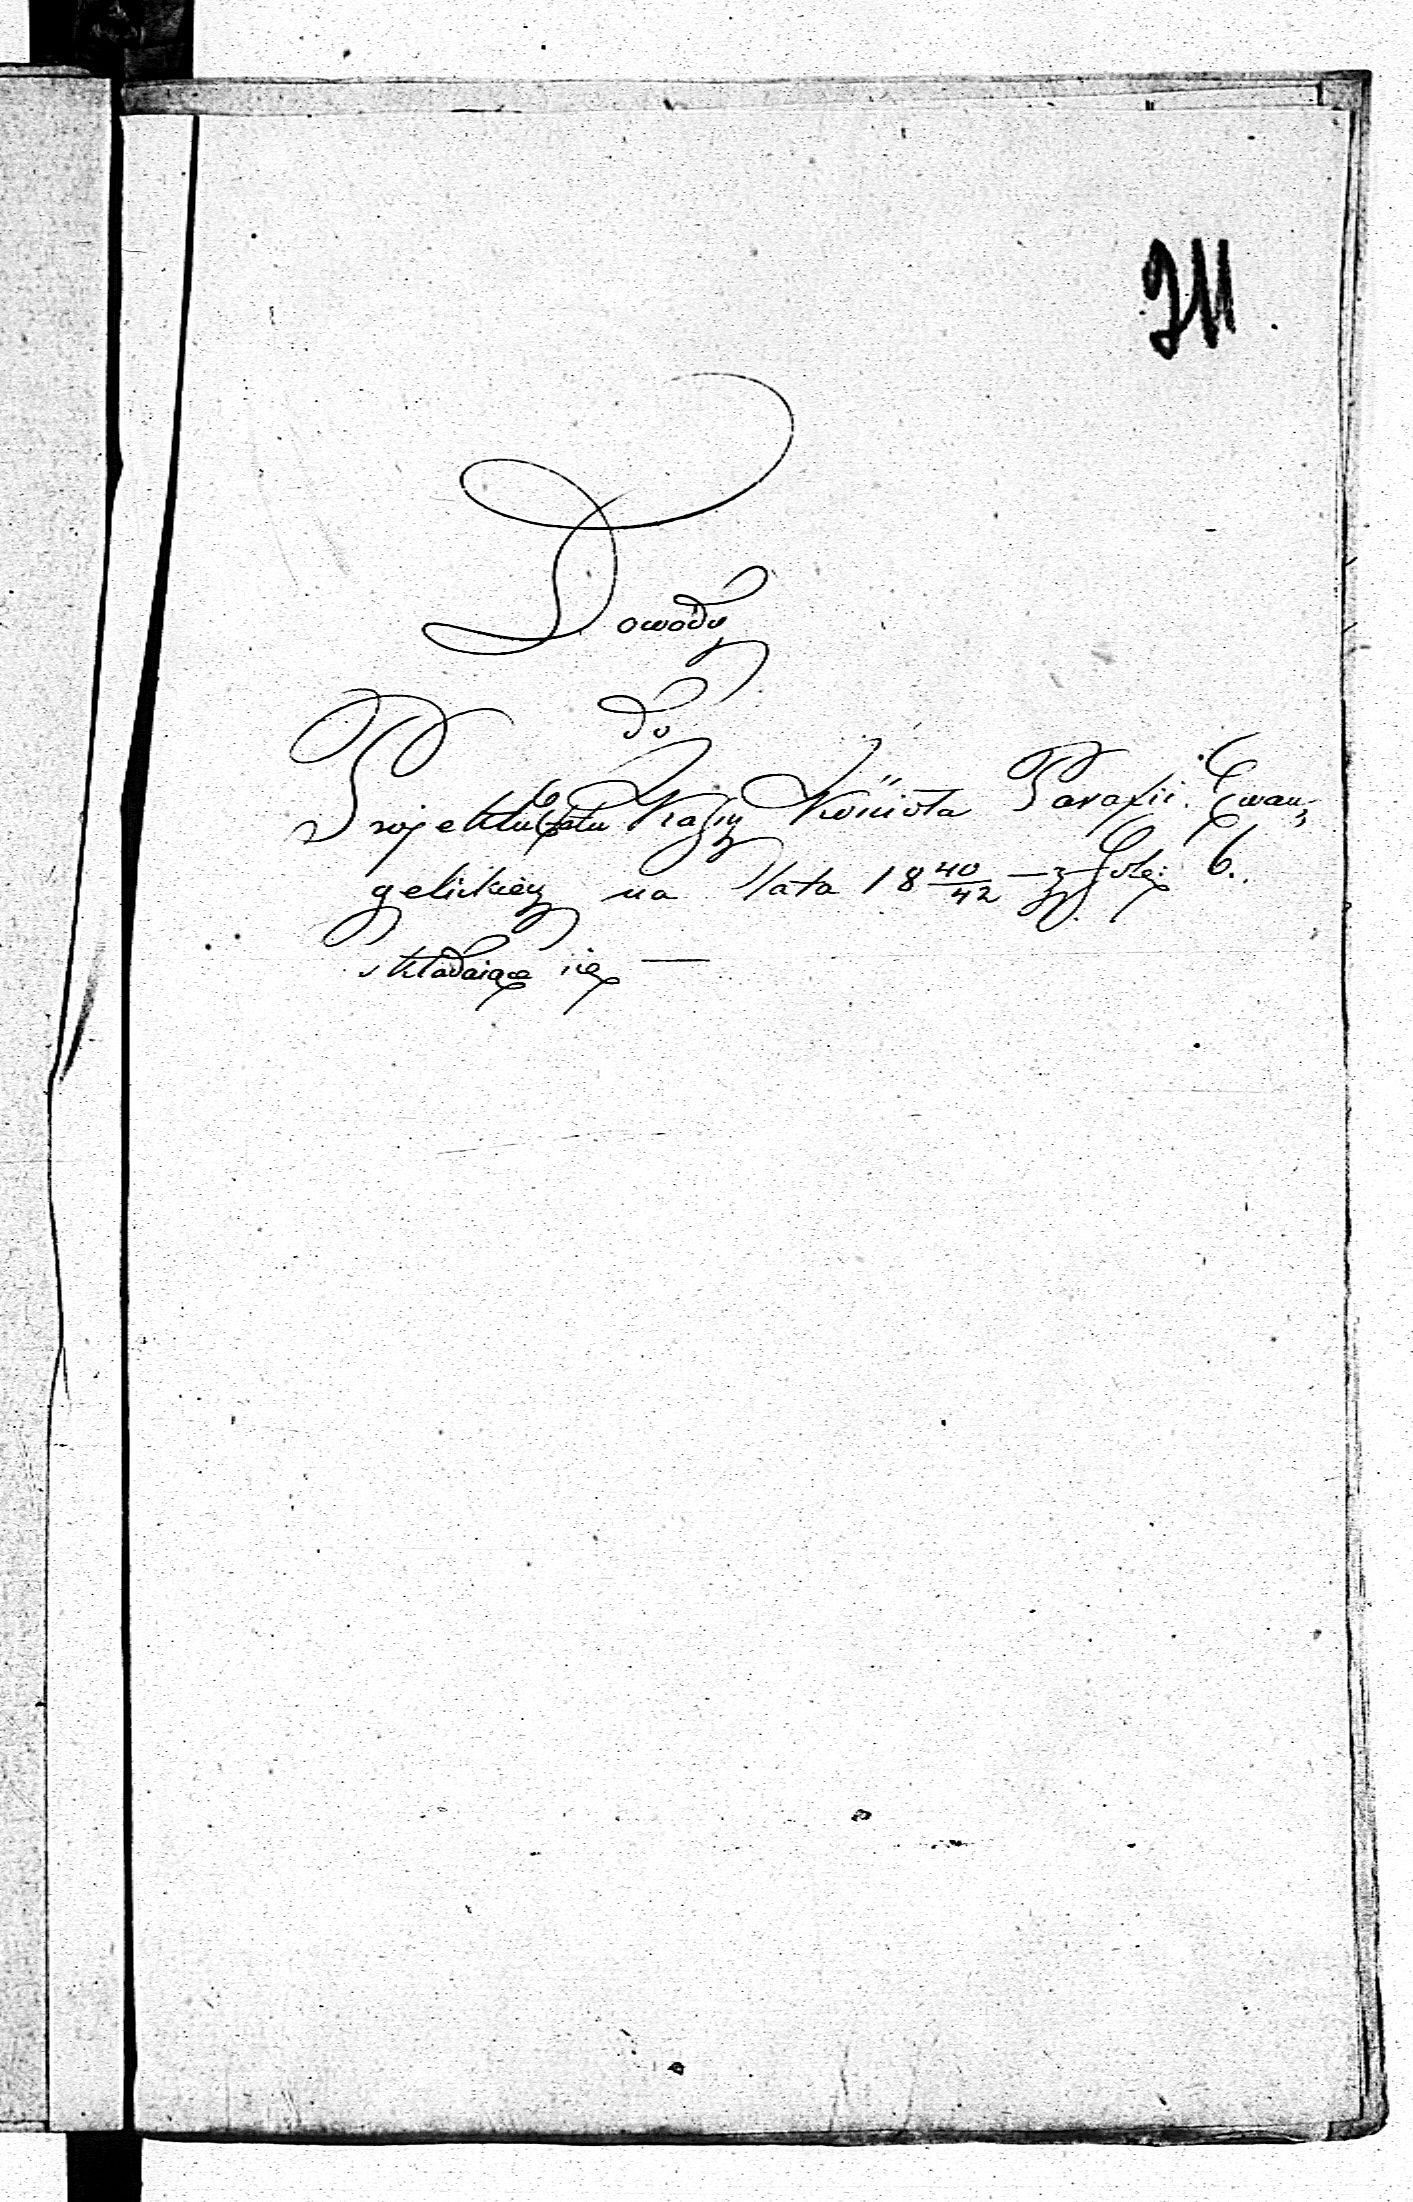 211
Dowody
do
Projektu Etatu Kassy Kościoła Parafii Ewan„
gelickiéy na lata 18 40/42 — z Fol: 6.
składaiące się —